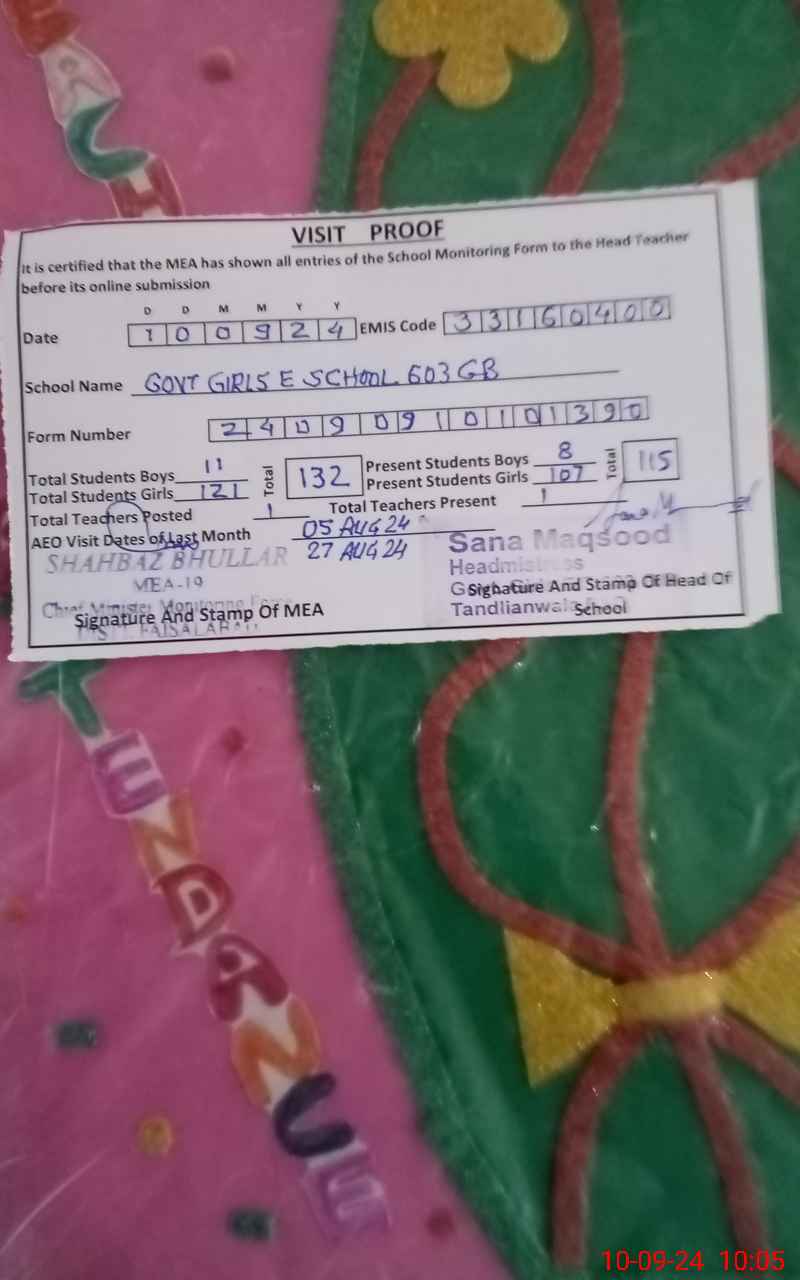 VISIT PROOF
It is certified that the MEA has shown all entries of the School Monitoring Form to the Head Teacher
before its online submission
D D M M Y Y
Date 1 0 0 9 2 4 EMIS Code 3 3 1 6 0 4 0 0
School Name GOVT GIRLS E SCHOOL 603 GB
Form Number 2 4 0 9 0 9 1 0 1 0 1 3 9 0
Total Students Boys 11 Total 132 Present Students Boys 8 Total 115
Total Students Girls 121 Present Students Girls 107
Total Teachers Posted 1 Total Teachers Present 1
AEO Visit Dates of Last Month 05 AUG 24
27 AUG 24
SHAHBAZ BHULLAR
MEA-19
Chief Minister Monitoring
DISTT. FAISALABAD
Signature And Stamp Of MEA
Sana Maqsood
Headmistress
Signature And Stamp Of Head Of
Tandlianwala
School
TENDANCE
10-09-24 10:05